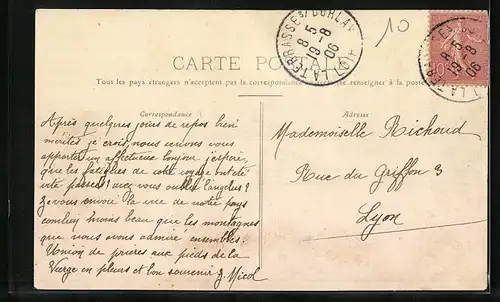 10
LA TERRASSE S/ DORLAY
8 5
19-8
06
8 5
19-8
06
10
CARTE POSTALE
Tous les pays étrangers n'acceptent pas la correspondance
se renseigner à la poste
Correspondance
Adresse
Après quelques jours de repos bien
mérités je crois, nous venons vous
apporter un affectueux bonjour j'espère,
que les fatigues de votre voyage ont été
vite passées? avez vous oublié l'angelus?
Je vous envoie la vue de notre pays
combien moins beau que les montagnes
que nous avons admiré ensembles.
Union de prières aux pieds de la
Vierge en pleurs et bon souvenir J. Micol
Mademoiselle Richoud
Rue du Griffon 3
Lyon